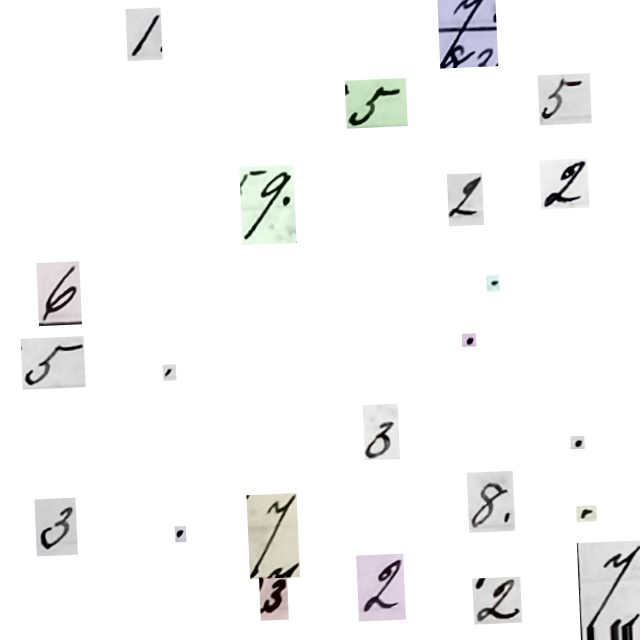 1.
7
5 5
9. 2 2
6 .
.
5 .
3 .
8.
3 . 7 .
3 2 2 7